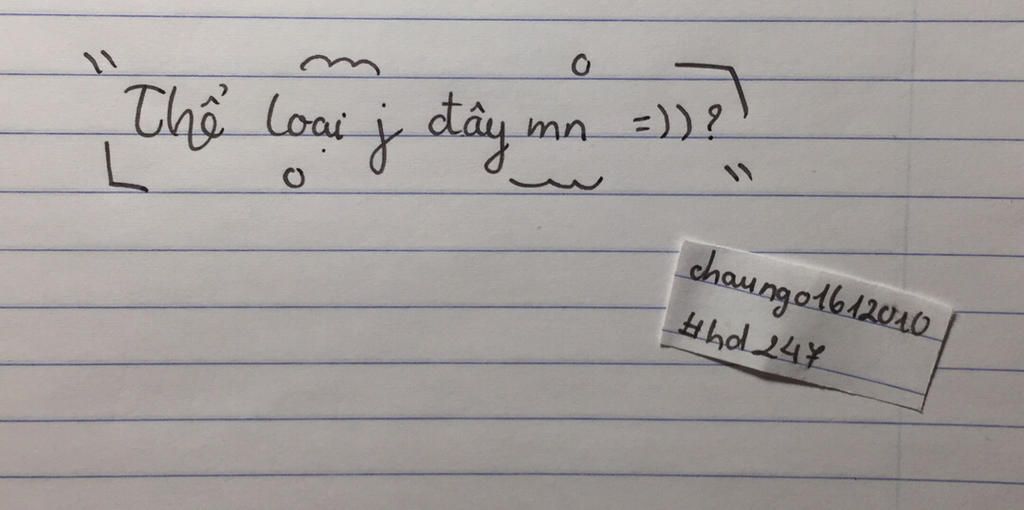 Thể loại j đây mn =))?
chaungo1612010
#hd247